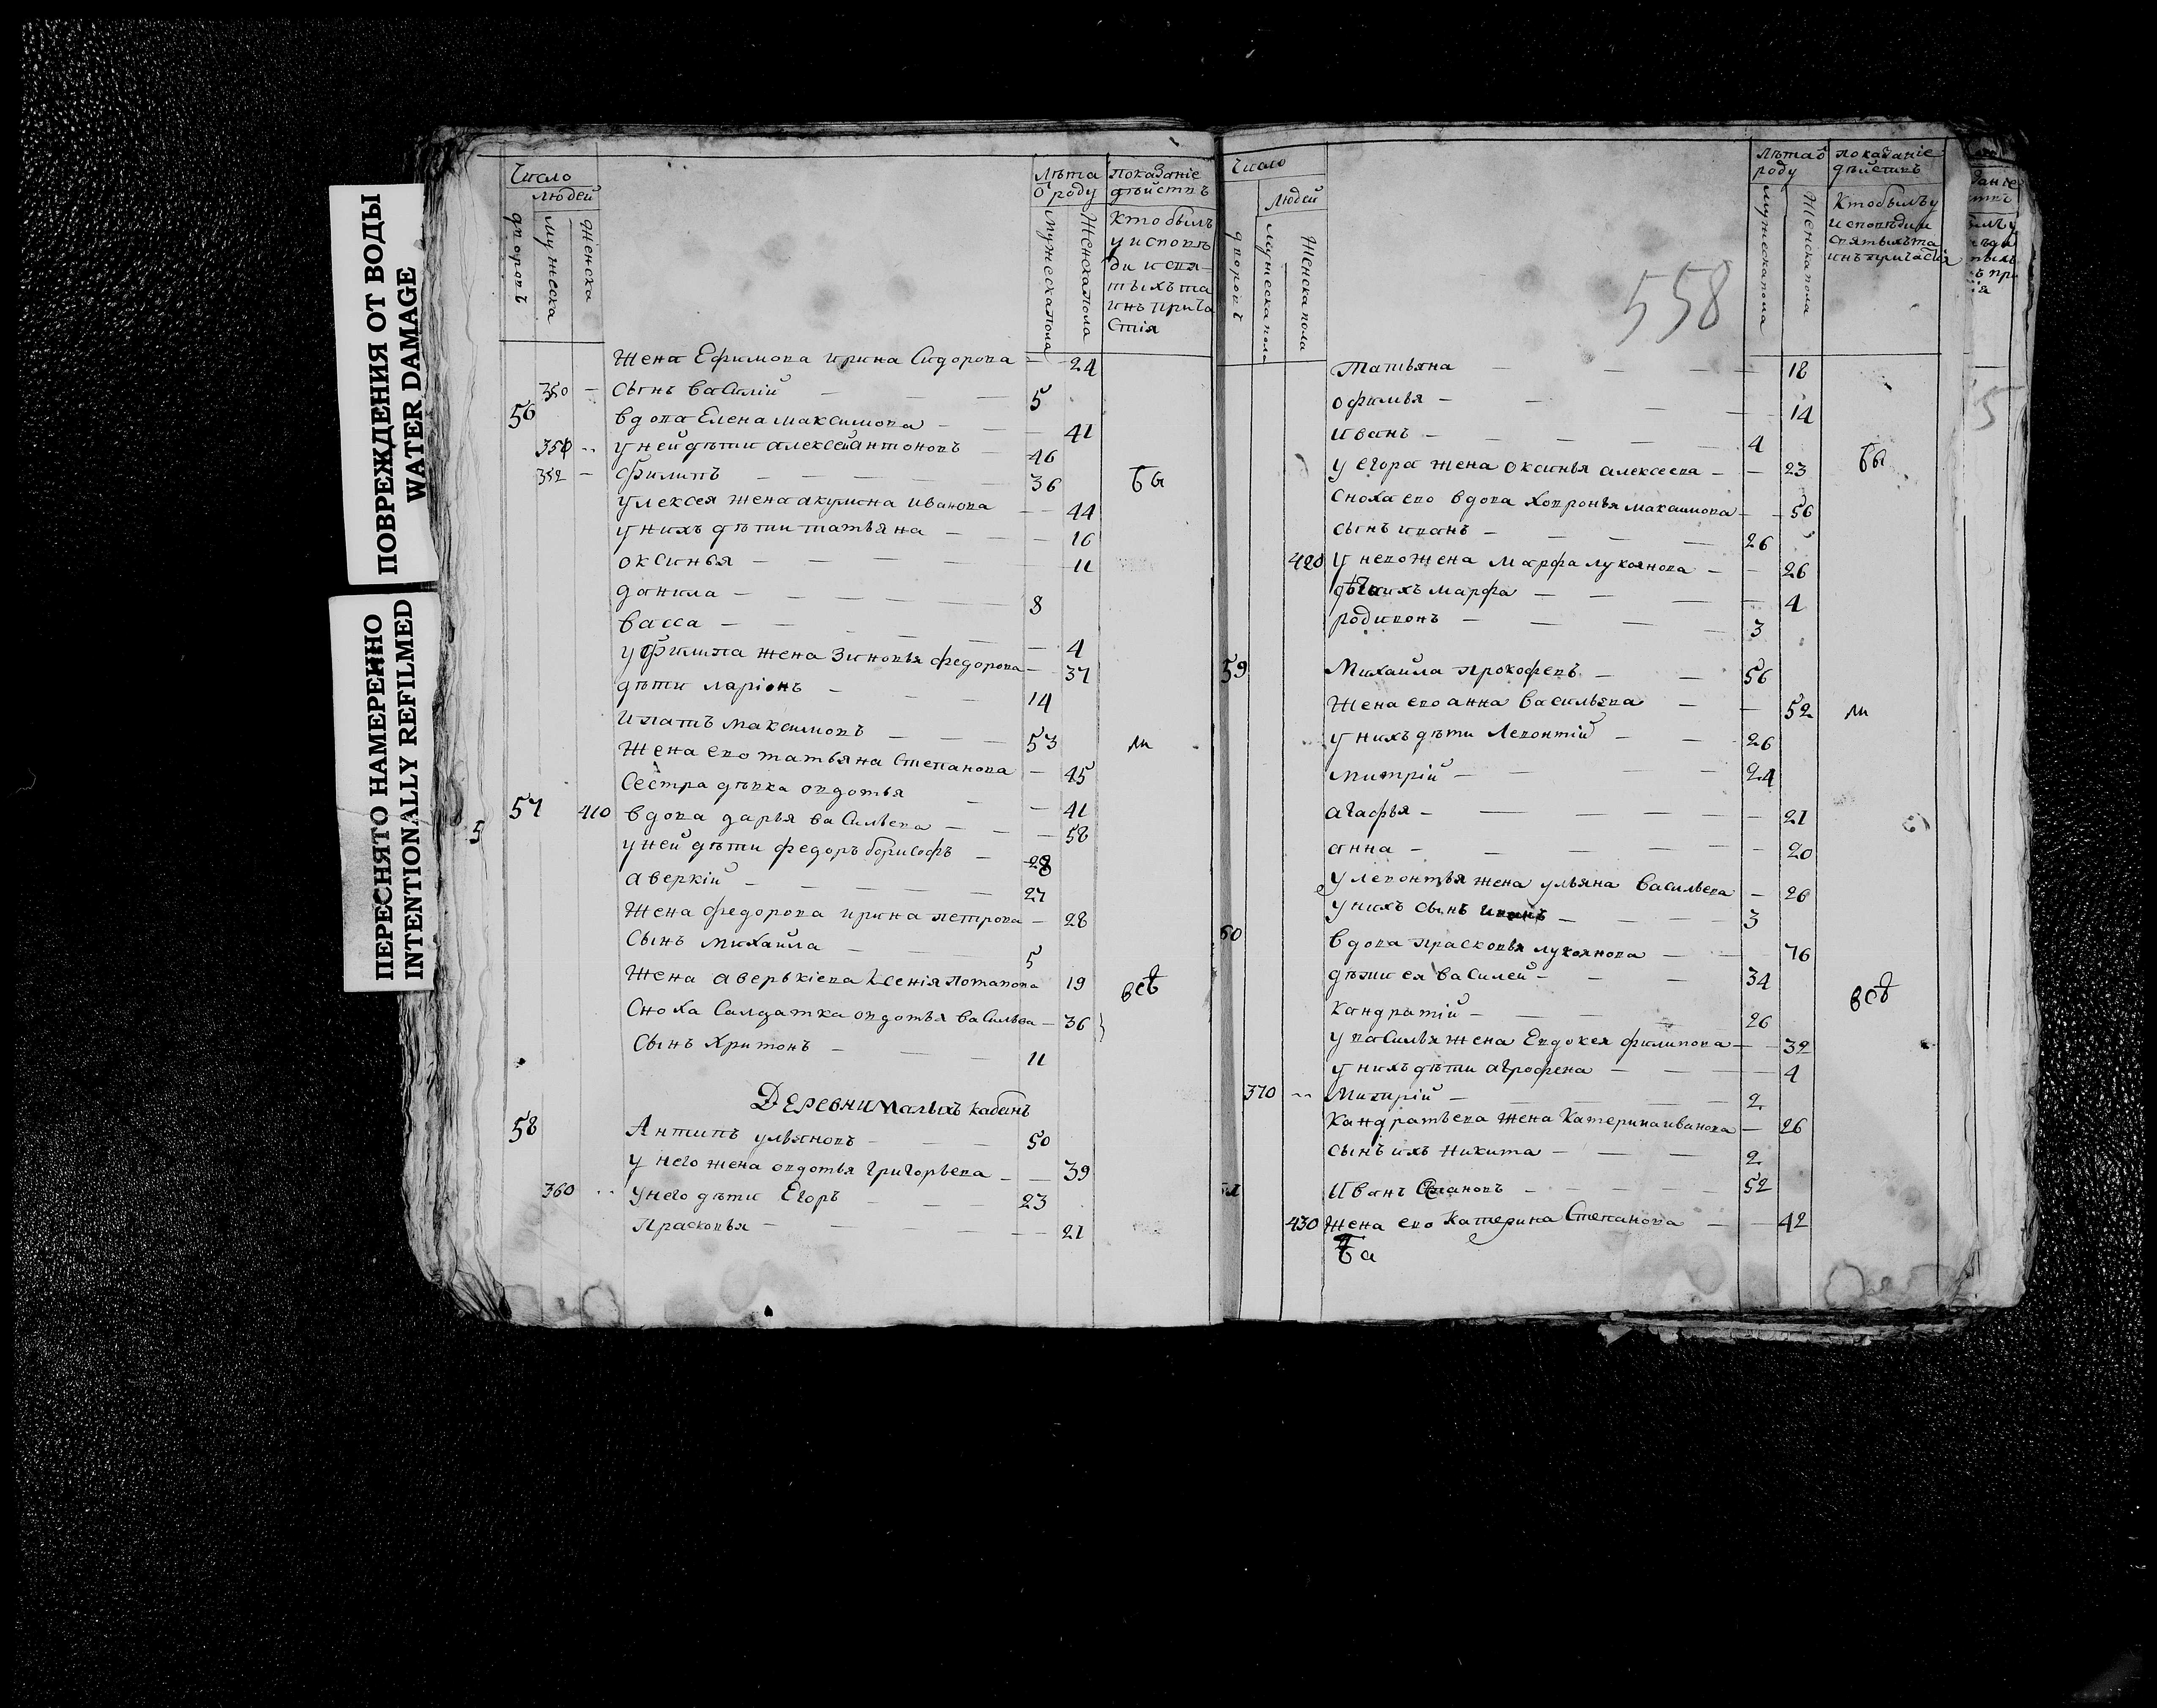 ПОВРЕЖДЕНИЯ ОТ ВОДЫ
WATER DAMAGE
ПЕРЕСНЯТО НАМЕРЕННО
INTENTIONALLY REFILMED
Число
людей
дворовъ
мужеска
женска
Лѣта
о роду
мужеска пола
Женска пола
показаніе
дѣйствъ
Кто былъ
у исповѣ
ди и свя
тыхъ та
инъ прича
стія
Жена Ефимова ирина Сидорова — 24
350 — сынъ василій — 5
56 вдова Елена максимова — 41
351 у ней дѣти алексей антоновъ — 46
352 — филипъ — 36 ба
у лексея жена акулина иванова — 44
у нихъ дѣти татьяна — 16
оксинья — 11
данила — 8
васса — 4
у филипа жена Зиновья федорова — 37
дѣти ларіонъ — 14
ипатъ максимовъ — 53 ли
Жена ево татьяна Степанова — 45
Сестра дѣвка овдотья — 41
57 410 вдова дарья васильева — 58
у ней дѣти федоръ борисофъ — 28
аверкій — 27
Жена федорова ирина петрова — 28
Сынъ михаила — 5
Жена аверькіева Ксенія потапова 19 всѣ
Сноха Салдатка овдотья васильва — 36
Сынъ Хритонъ — 11
Деревни малыхъ кабанъ
58 Антипъ ульяновъ — 50
у него жена овдотья григорьева — 39
360 у него дѣти Егоръ — 23
Прасковья — 21
Число
Людей
дворовъ
мужеска пола
Женска пола
558
Лѣта о
роду
мужеска пола
Женска пола
показаніе
дѣйствъ
Кто былъ у
исповѣди и
святыхъ та
инъ причастія
татьяна — 18
офимья — 14
иванъ — 4
у егора жена оксинья алексеева — 23 ба
Сноха ево вдова Ховронья максимова — 56
сынъ иванъ — 26
420 у нево жена марфа лукоянова — 26
дѣти ихъ марфа — 4
родивонъ — 3
59 Михаила прокофевъ — 56
Жена ево анна васильева — 52 ли
у нихъ дѣти Левонтій — 26
митрій — 24
агафья — 21
анна — 20
у левонтья жена ульяна васильева — 26
у нихъ сынъ иванъ — 3
60 вдова прасковья лукоянова — 76
дѣти ея василей — 34
Кандратій — 26 всѣ
у василья жена Евдокея филипова — 32
у нихъ дѣти агрофена — 4
370 Митрій — 2
Кандратьева жена Катерина иванова — 26
сынъ ихъ никита — 2
Иванъ — 52
430 Жена ево Катерина Степанова — 42
ба